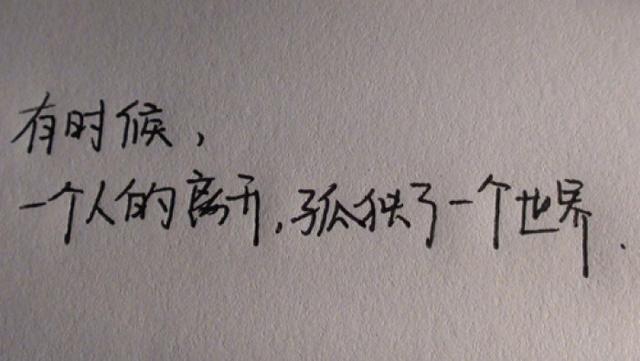 有时候,
一个人的离开,孤独了一个世界.